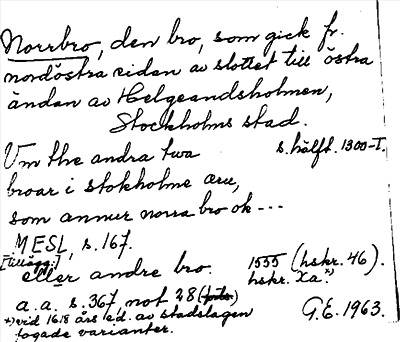 Norrbro, den bro, som gick fr.
nordöstra sidan av slottet till östra
ändan av Helgeandsholmen,
Stockholms stad.
Um the andra twa s. hälft. 1300-t.
broar i stokholme æru,
som annur norra bro ok ---
MESL, s. 167.
[tillägg:]
eller andre bro. 1555 (hskr. 46).
hskr. Xa.x)
a. a. s. 367 not 28 (forts.) G.E. 1963.
x) vid 1618 års ed. av stadslagen
fogade varianter.